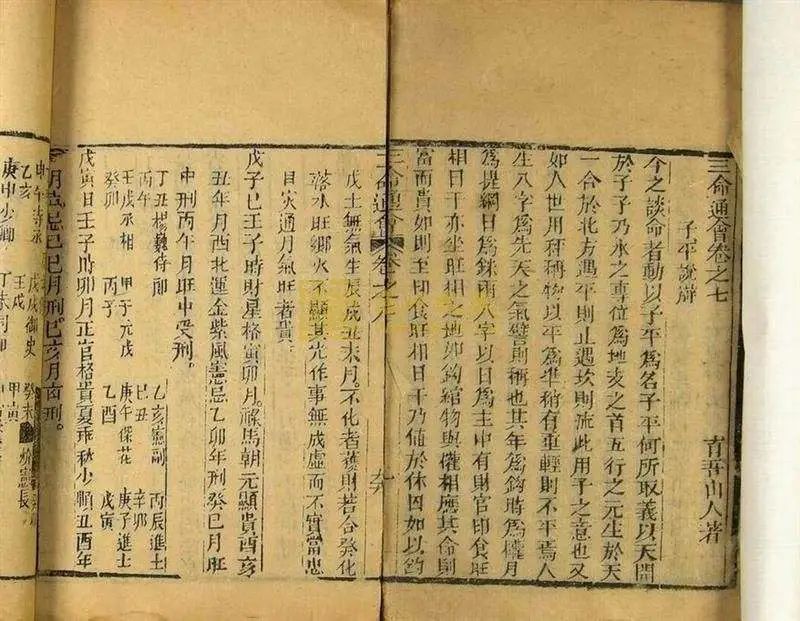 三命通會卷之七
育吾山人著
子平說辯
今之談命者動以子平為名子平何所取義以天開
於子子乃水之專位為地支之首五行之元生於天
一合於北方遇平則止遇坎則流此用子之意也又
如人世用秤稱物以平為準稍有重輕則不平焉人
生八字為先天之氣譬則稱也其年為鈎時為權月
為提綱日為銖兩八字以日為主中有財官印食旺
相日干亦坐旺相之地如鈎綰物與權相應其命則
富而貴如則至印食旺相日干乃値於休囚如以鈞
三命通會 卷之
戊土無氣生辰戌丑未月。不化者獲財若合癸化
落水旺鄉火不顯其光作事無成虛而不實當忠
目次通月氣旺者貴。
戊子巳壬子時財星格寅卯月。祿馬朝元顯貴酉亥
丑年月西北運金紫風憲忌乙卯年刑癸巳月旺
中刑丙午月旺中受刑。
丁丑楊巍侍郎 乙亥憲副 丙辰進士
丙午 巳丑 辛卯
壬戌相 甲子元戎 庚午探花 庚子進士
癸卯 丙子 乙酉 戊寅
戊寅日壬子時卯月正官格貴夏平秋少順丑酉年
月忌巳巳月刑巳亥月刑。
甲午 戊戌御史 癸未憲長
乙亥 壬戌 甲寅
庚申少卿 丁未